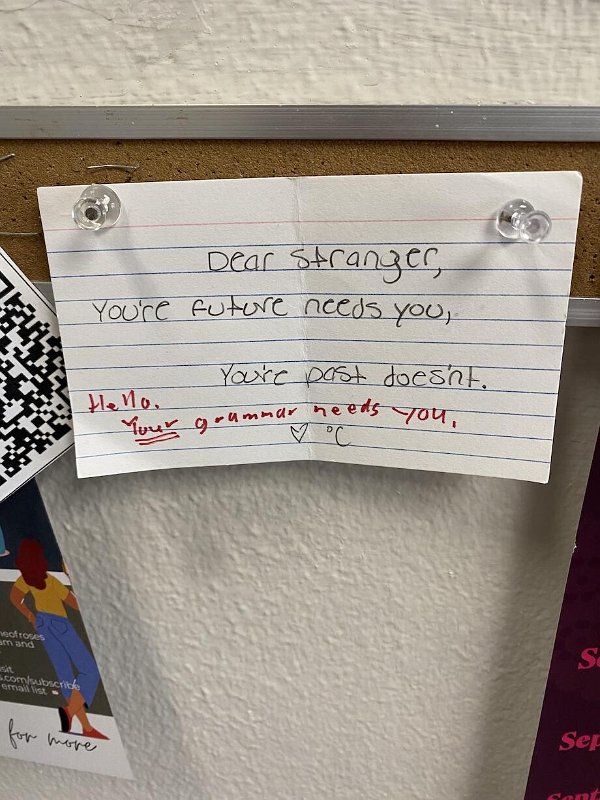 Dear Stranger,
You're future needs you,
You're past does'nt.
Hello.
Your grammar needs you.
♡ °C
neofroses
m and
sit
s.com/subscribe
email list
for more
Se
Sep
Sept